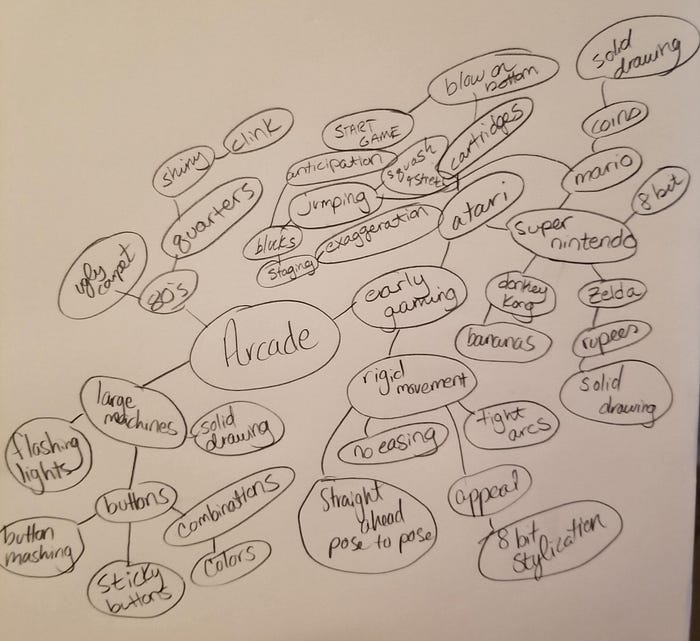 solid
drawing
blow on
bottom
START
GAME
clink
shiny
coins
cartridges
squash
& stretch
anticipation
mario
8 bit
jumping
quarters
atari
super
nintendo
exaggeration
blocks
staging
ugly
carpet
80's
early
gaming
donkey
kong
zelda
Arcade
bananas
rupees
rigid
movement
solid
drawing
large
machines
solid
drawing
tight
arcs
no easing
flashing
lights
buttons
combinations
appeal
Straight
ahead
pose to pose
8 bit
stylication
button
mashing
colors
sticky
buttons